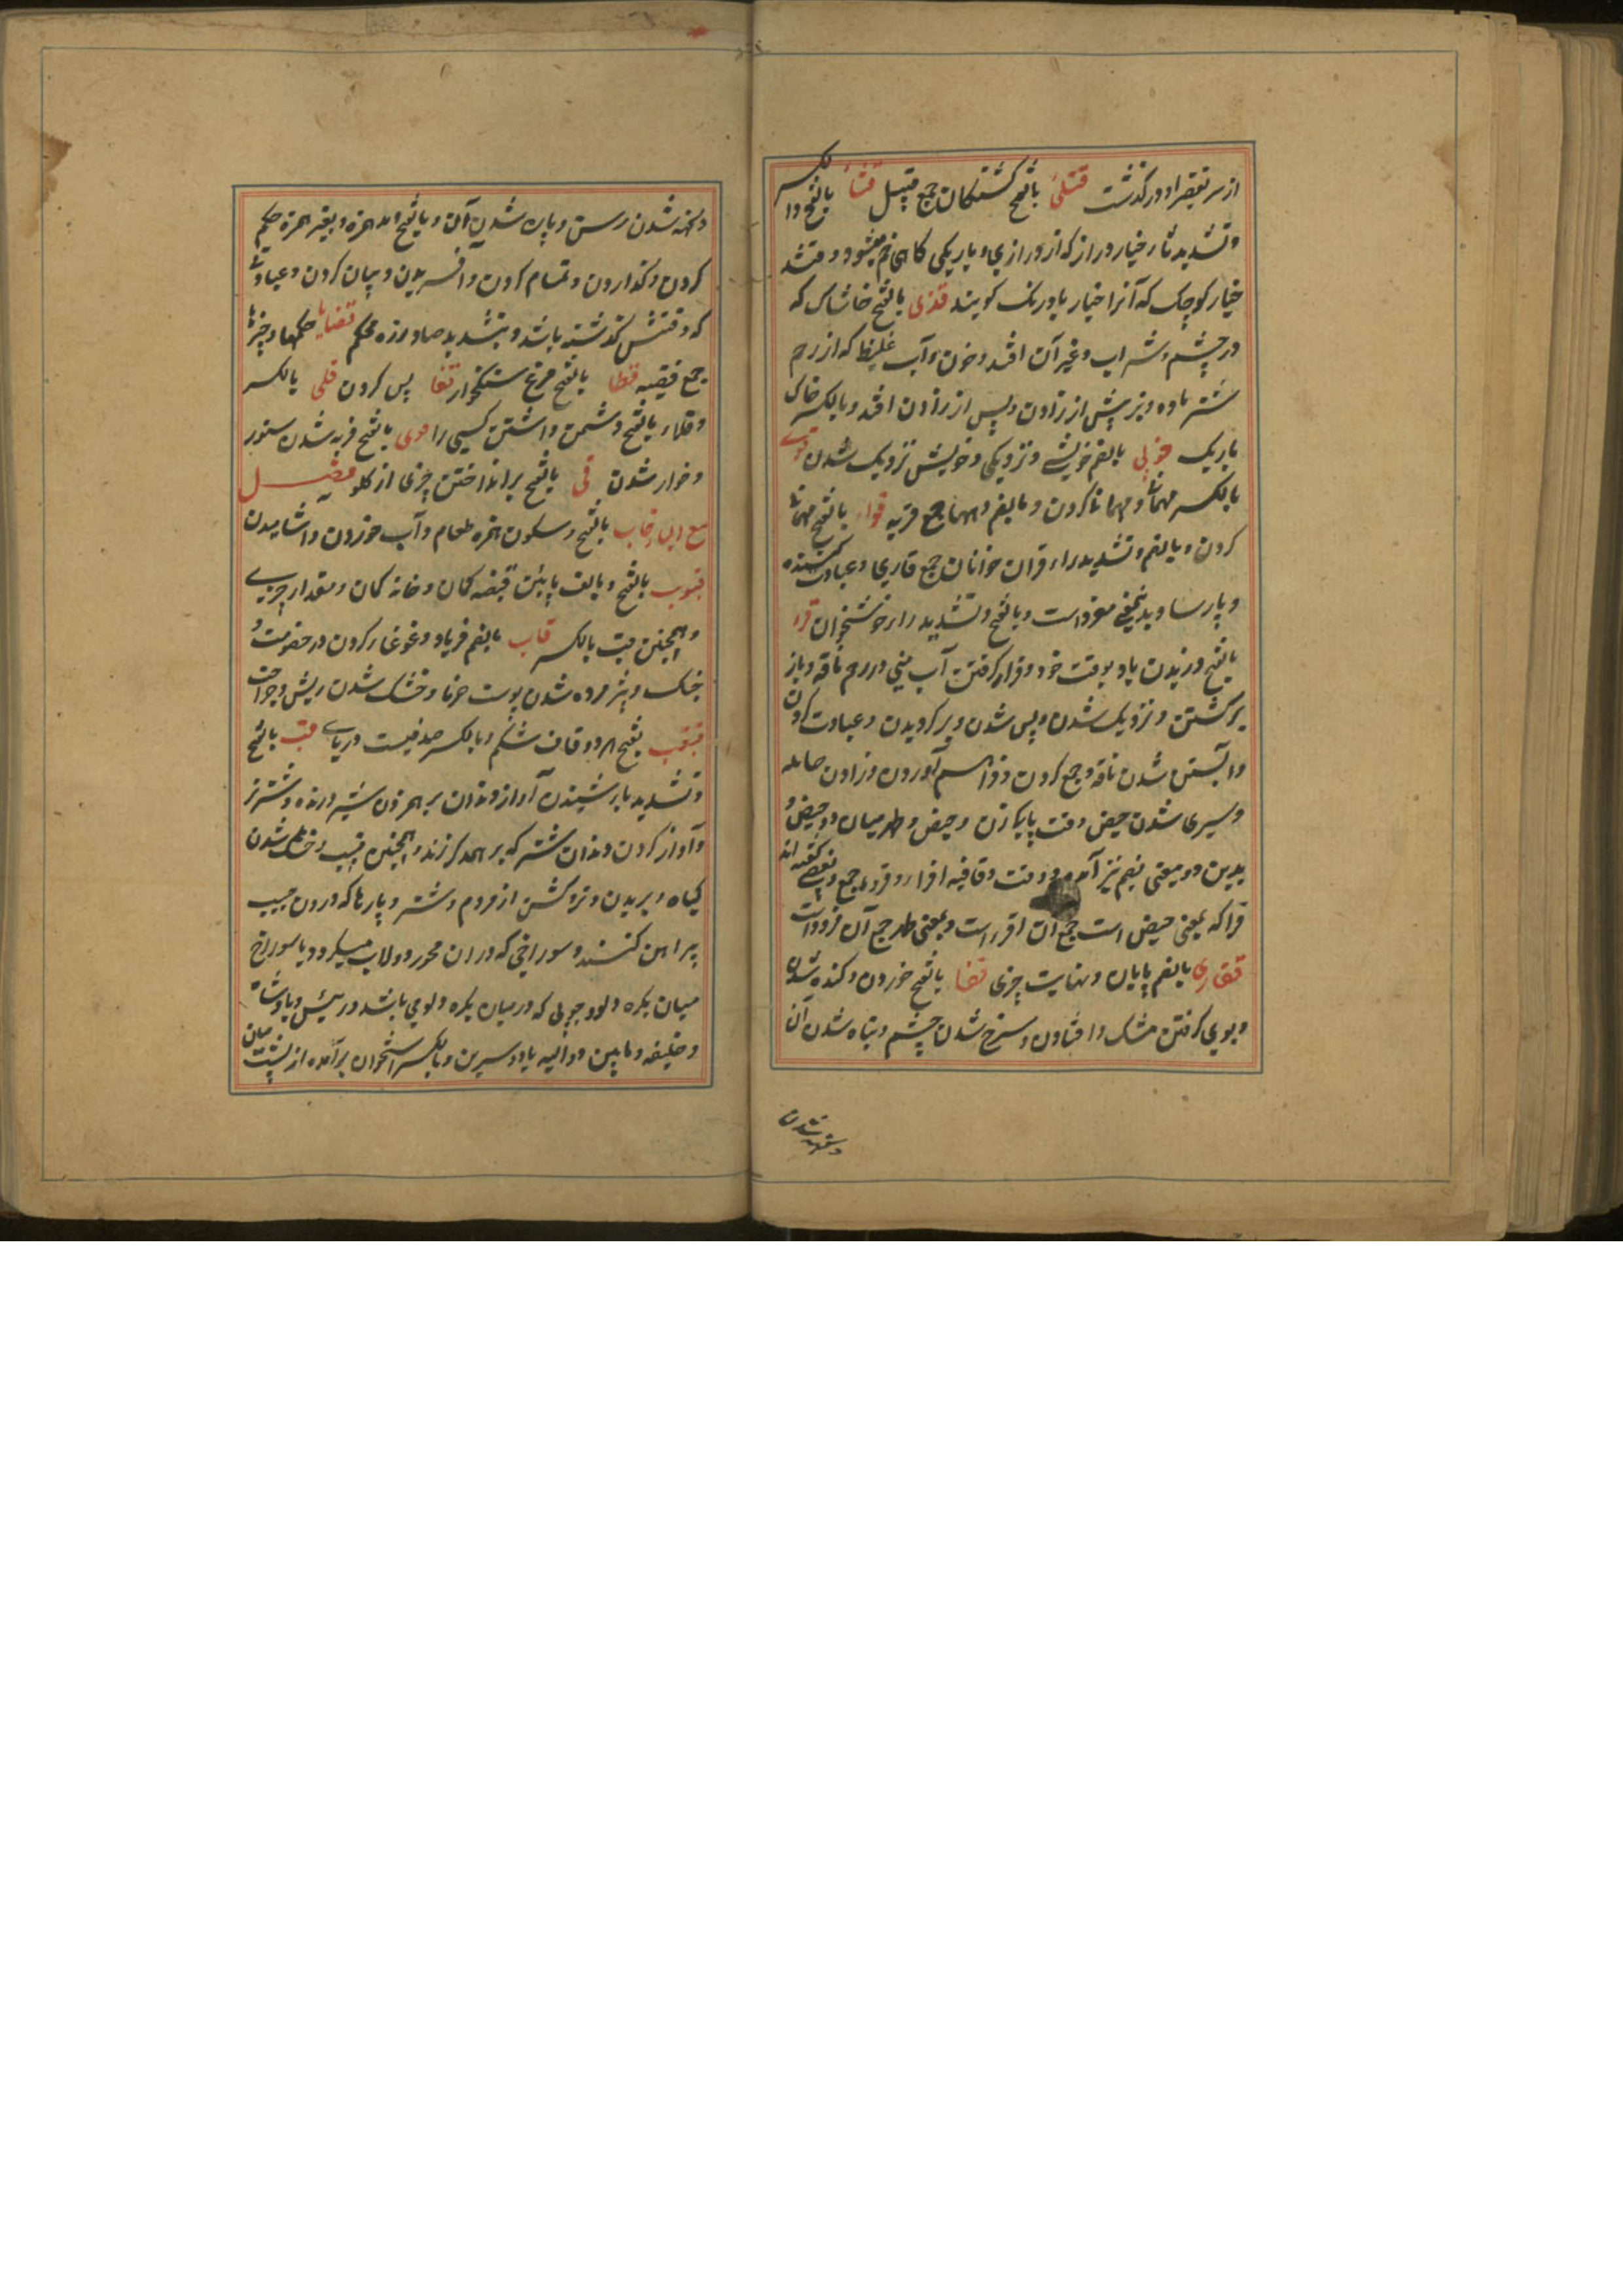 از سر تقصیر او در گذشت قتلی بالفتح کشتگان جمع قتیل قثا بالفتح والکسر
وتشدید ثا خیار دراز که از درازی و باریکی کاهی خم میشود و قثد
خیار کوچک که آنرا خیار بادرنک کویند قذی بالفتح خاشاک که
در چشم و شراب و غیر آن افتد و خون و آب غلیظ که از رحم
شتر ماده و بز پیش از زادن و پس از زادن افتد و بالکسر خاک
باریک قربی بالضم خویشی و نزدیکی و خویش نزدیک شدن
بالکسر مهمانی کردن و بالضم دیهها جمع قریه قراء بالفتح مهمانی
کردن و بالضم و تشدید راء قرآن خوانان جمع قاری و عبادت کننده
و پارسا و بدینمعنی مفرد است و بالفتح و تشدید راء خوشخوان قرء
بالفتح وزیدن باد بوقت خود و قرار کرفتن آب منی در رحم ناقه و باز
برکشتن و نزدیک شدن و پس شدن و برکردیدن و عبادت کردن
و آبستن شدن ناقه و جمع کردن و فراهم آوردن و زادن حامله
و سپری شدن حیض و وقت پاکی زن و حیض و طهر میان دو حیض و
بدین دو معنی بضم نیز آمده و وقت و قافیه اقراء و قروء جمع و بعضی گفته اند
قرا که بمعنی حیض است جمع آن اقراء است و بمعنی طهر جمع آن قروء است
قصاری بالضم پایان و نهایت چیزی قضا بالفتح خوردن و کنده شدن
و بوی کرفتن مشک و افتادن و سرخ شدن چشم و تباه شدن آن
و کهنه شدن
و کهنه شدن رسن و پاره شدن آن و بالفتح و مد همزه و بغیر همزه حکم
کردن و گذاردن و تمام کردن و آفریدن و بیان کردن و عبادتی
که وقتش گذشته باشد و بتشدید ضاد زره محکم قضایا حکمها و خبرها
جمع قضیه قطا بالفتح مرغ سنکخوار قفا پس کردن قلی بالکسر
و قلاء بالفتح دشمن داشتن کسی را قمی بالفتح فربه شدن ستور
و خوار شدن قی بالفتح برانداختن چیزی از کلو فصل
مع الباء قاب بالفتح و سکون همزه طعام و آب خوردن و اشامیدن
بالفتح و بالف پائین قبضه کمان و خانه کمان و مقدار چیزی
و همچنین قیب بالکسر قباب بالضم فریاد و غوغا کردن در خصومت و
جنک و پژمرده شدن پوست خرما و خشک شدن ریش و جراحت
قبقب بفتح هر دو قاف شکم و بالکسر صدفیست دریایی قب بالفتح
و تشدید با برشنیدن آواز دندان برهم زدن شیر درنده و شتر نر
و آواز کردن دندان شتر که برهمدکر زند و همچنین قبیب و خشک شدن
کیاه و بریدن و نر و کشن از مردم و شتر و پارها که درون جیب
پیراهن کنند و سوراخی که در ان محور دولاب میکردد یا سوراخ
میان بکره دلو و چوبی که در میان بکره دلومی باشد و رئیس و پادشاه
و خلیفه و مابین دو الیه یا دو سرین و بالکسر استخوان برآمده از پشت میان